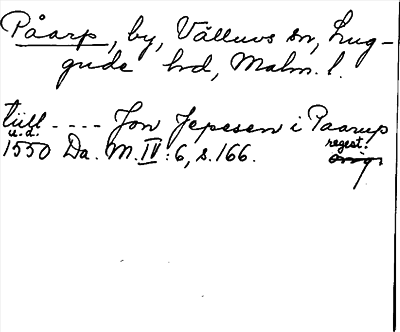 Påarp, by, Välluvs sn, Lug-
gude hrd, Malm. l.
till .... Jon Jepesen i Paarup
u.d.
1550 Da. M. IV: 6, s. 166. regest.
orig.